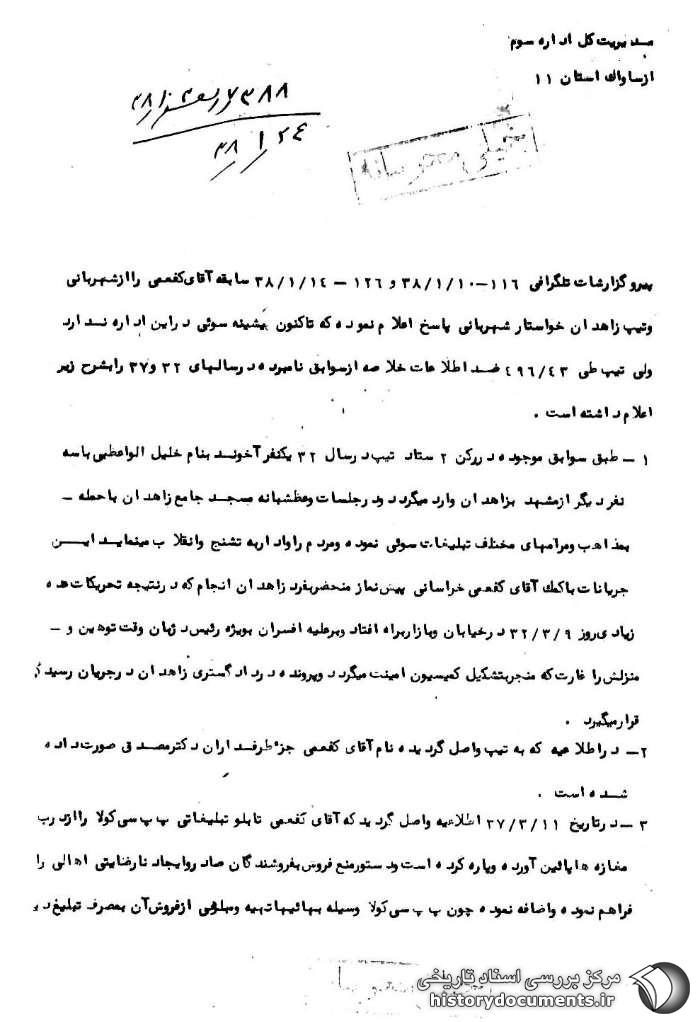 مدیریت کل اداره سوم
از ساواک استان ۱۱
۳۸/۱/۲٤
خیلی محرمانه
پیرو گزارشات تلگرافی ۱۱٦-۳۸/۱/۱۰ و ۱۲٦ - ۳۸/۱/۱٤ سابقه آقای کفعمی را از شهربانی
و تیپ زاهدان خواستار شهربانی پاسخ اعلام نموده که تاکنون پیشینه سوئی در این اداره ندارد
ولی تیپ طی ٤۹٦/٤۳ ضد اطلاعات خلاصه از سوابق نامبرده در سالهای ۳۲ و ۳۷ را بشرح زیر
اعلام داشته است .
۱ - طبق سوابق موجوده در رکن ۲ ستاد تیپ در سال ۳۲ یکنفر آخوند بنام خلیل الواعظی با سه
نفر دیگر از مشهد بزاهدان وارد میگردد و در جلسات وعظ شبانه مسجد جامع زاهدان با حمله -
بمذاهب و مرامهای مختلف تبلیغات سوئی نموده و مردم را وادار به تشنج و انقلاب مینماید این
جریانات با کمک آقای کفعمی خراسانی پیش نماز منحصر بفرد زاهدان انجام که در نتیجه تحریکات عده
زیادی روز ۳۲/۳/۹ در خیابان و بازار براه افتاد و بر علیه افسران بویژه رئیس دژبان وقت توهین و -
منزلش را غارت که منجر بتشکیل کمیسیون امینت میگردد و پرونده در دادگستری زاهدان در جریان رسید
قرار میگیرد .
۲ - در اطلاعیه که به تیپ واصل گردیده نام آقای کفعمی جزء طرفداران دکتر مصدق صورت داده
شده است .
۳ - در تاریخ ۳۷/۳/۱۱ اطلاعیه واصل گردید که آقای کفعمی تابلو تبلیغاتی پپ سی کولا را از درب
مغازه ها پائین آورده و پاره کرده است و دستور منع فروش بفروشندگان صادر و ایجاد نارضایتی اهالی را
فراهم نموده و اضافه نموده چون پپ سی کولا وسیله بهائیها تهیه و مبلغی از فروش آن بمصرف تبلیغ
مرکز بررسی اسناد تاریخی
historydocuments.ir